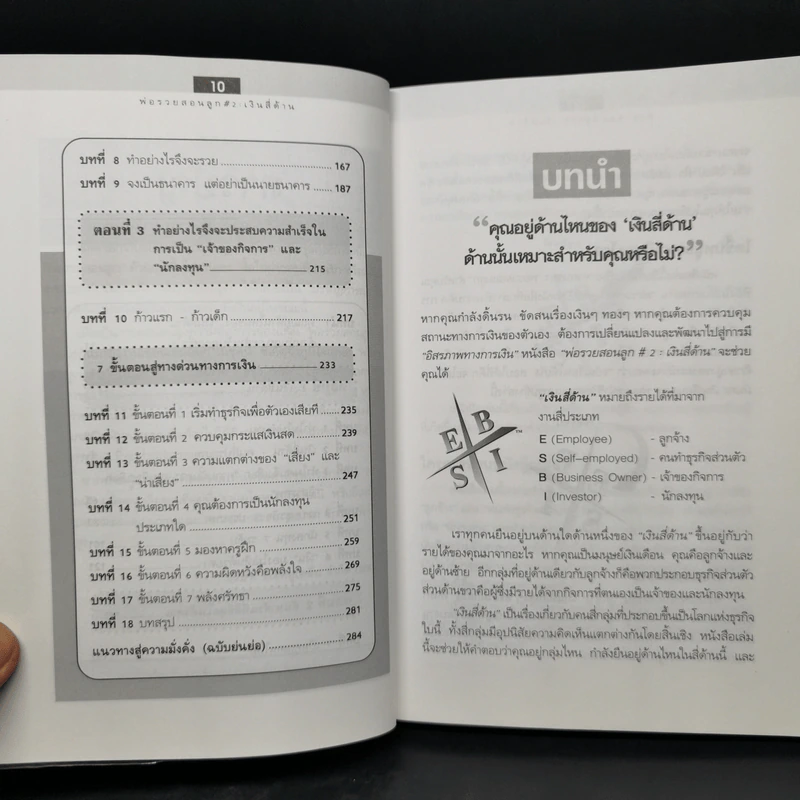 10
พ่อรวยสอนลูก#2:เงินสี่ด้าน
บทที่ 8 ทำอย่างไรจึงจะรวย ........ 167
บทที่ 9 จงเป็นธนาคาร แต่อย่าเป็นนายธนาคาร ........ 187
ตอนที่ 3 ทำอย่างไรจึงจะประสบความสำเร็จใน
การเป็น "เจ้าของกิจการ" และ
"นักลงทุน" ........ 215
บทที่ 10 ก้าวแรก - ก้าวเด็ก ........ 217
7 ขั้นตอนสู่ทางด่วนทางการเงิน ........ 233
บทที่ 11 ขั้นตอนที่ 1 เริ่มทำธุรกิจเพื่อตัวเองเสียที ........ 235
บทที่ 12 ขั้นตอนที่ 2 ควบคุมกระแสเงินสด ........ 239
บทที่ 13 ขั้นตอนที่ 3 ความแตกต่างของ "เสี่ยง" และ
"น่าเสี่ยง" ........ 247
บทที่ 14 ขั้นตอนที่ 4 คุณต้องการเป็นนักลงทุน
ประเภทใด ........ 251
บทที่ 15 ขั้นตอนที่ 5 มองหาครูฝึก ........ 259
บทที่ 16 ขั้นตอนที่ 6 ความผิดหวังคือพลังใจ ........ 269
บทที่ 17 ขั้นตอนที่ 7 พลังศรัทธา ........ 275
บทที่ 18 บทสรุป ........ 281
แนวทางสู่ความมั่งคั่ง (ฉบับย่นย่อ) ........ 284
บทนำ
"คุณอยู่ด้านไหนของ 'เงินสี่ด้าน'
ด้านนั้นเหมาะสำหรับคุณหรือไม่?"
หากคุณกำลังดิ้นรน ขัดสนเรื่องเงินๆ ทองๆ หากคุณต้องการควบคุม
สถานะทางการเงินของตัวเอง ต้องการเปลี่ยนแปลงและพัฒนาไปสู่การมี
"อิสรภาพทางการเงิน" หนังสือ "พ่อรวยสอนลูก # 2 : เงินสี่ด้าน" จะช่วย
คุณได้
E B
S I
™
"เงินสี่ด้าน" หมายถึงรายได้ที่มาจาก
งานสี่ประเภท
E (Employee) - ลูกจ้าง
S (Self-employed) - คนทำธุรกิจส่วนตัว
B (Business Owner) - เจ้าของกิจการ
I (Investor) - นักลงทุน
เราทุกคนยืนอยู่บนด้านใดด้านหนึ่งของ "เงินสี่ด้าน" ขึ้นอยู่กับว่า
รายได้ของคุณมาจากอะไร หากคุณเป็นมนุษย์เงินเดือน คุณคือลูกจ้างและ
อยู่ด้านซ้าย อีกกลุ่มที่อยู่ด้านเดียวกับลูกจ้างก็คือพวกประกอบธุรกิจส่วนตัว
ส่วนด้านขวาคือผู้ซึ่งมีรายได้จากกิจการที่ตนเองเป็นเจ้าของและนักลงทุน
"เงินสี่ด้าน" เป็นเรื่องเกี่ยวกับคนสี่กลุ่มที่ประกอบขึ้นเป็นโลกแห่งธุรกิจ
ใบนี้ ทั้งสี่กลุ่มมีอุปนิสัยความคิดเห็นแตกต่างกันโดยสิ้นเชิง หนังสือเล่ม
นี้จะช่วยให้คำตอบว่าคุณอยู่กลุ่มไหน กำลังยืนอยู่ด้านไหนในสี่ด้านนี้ และ